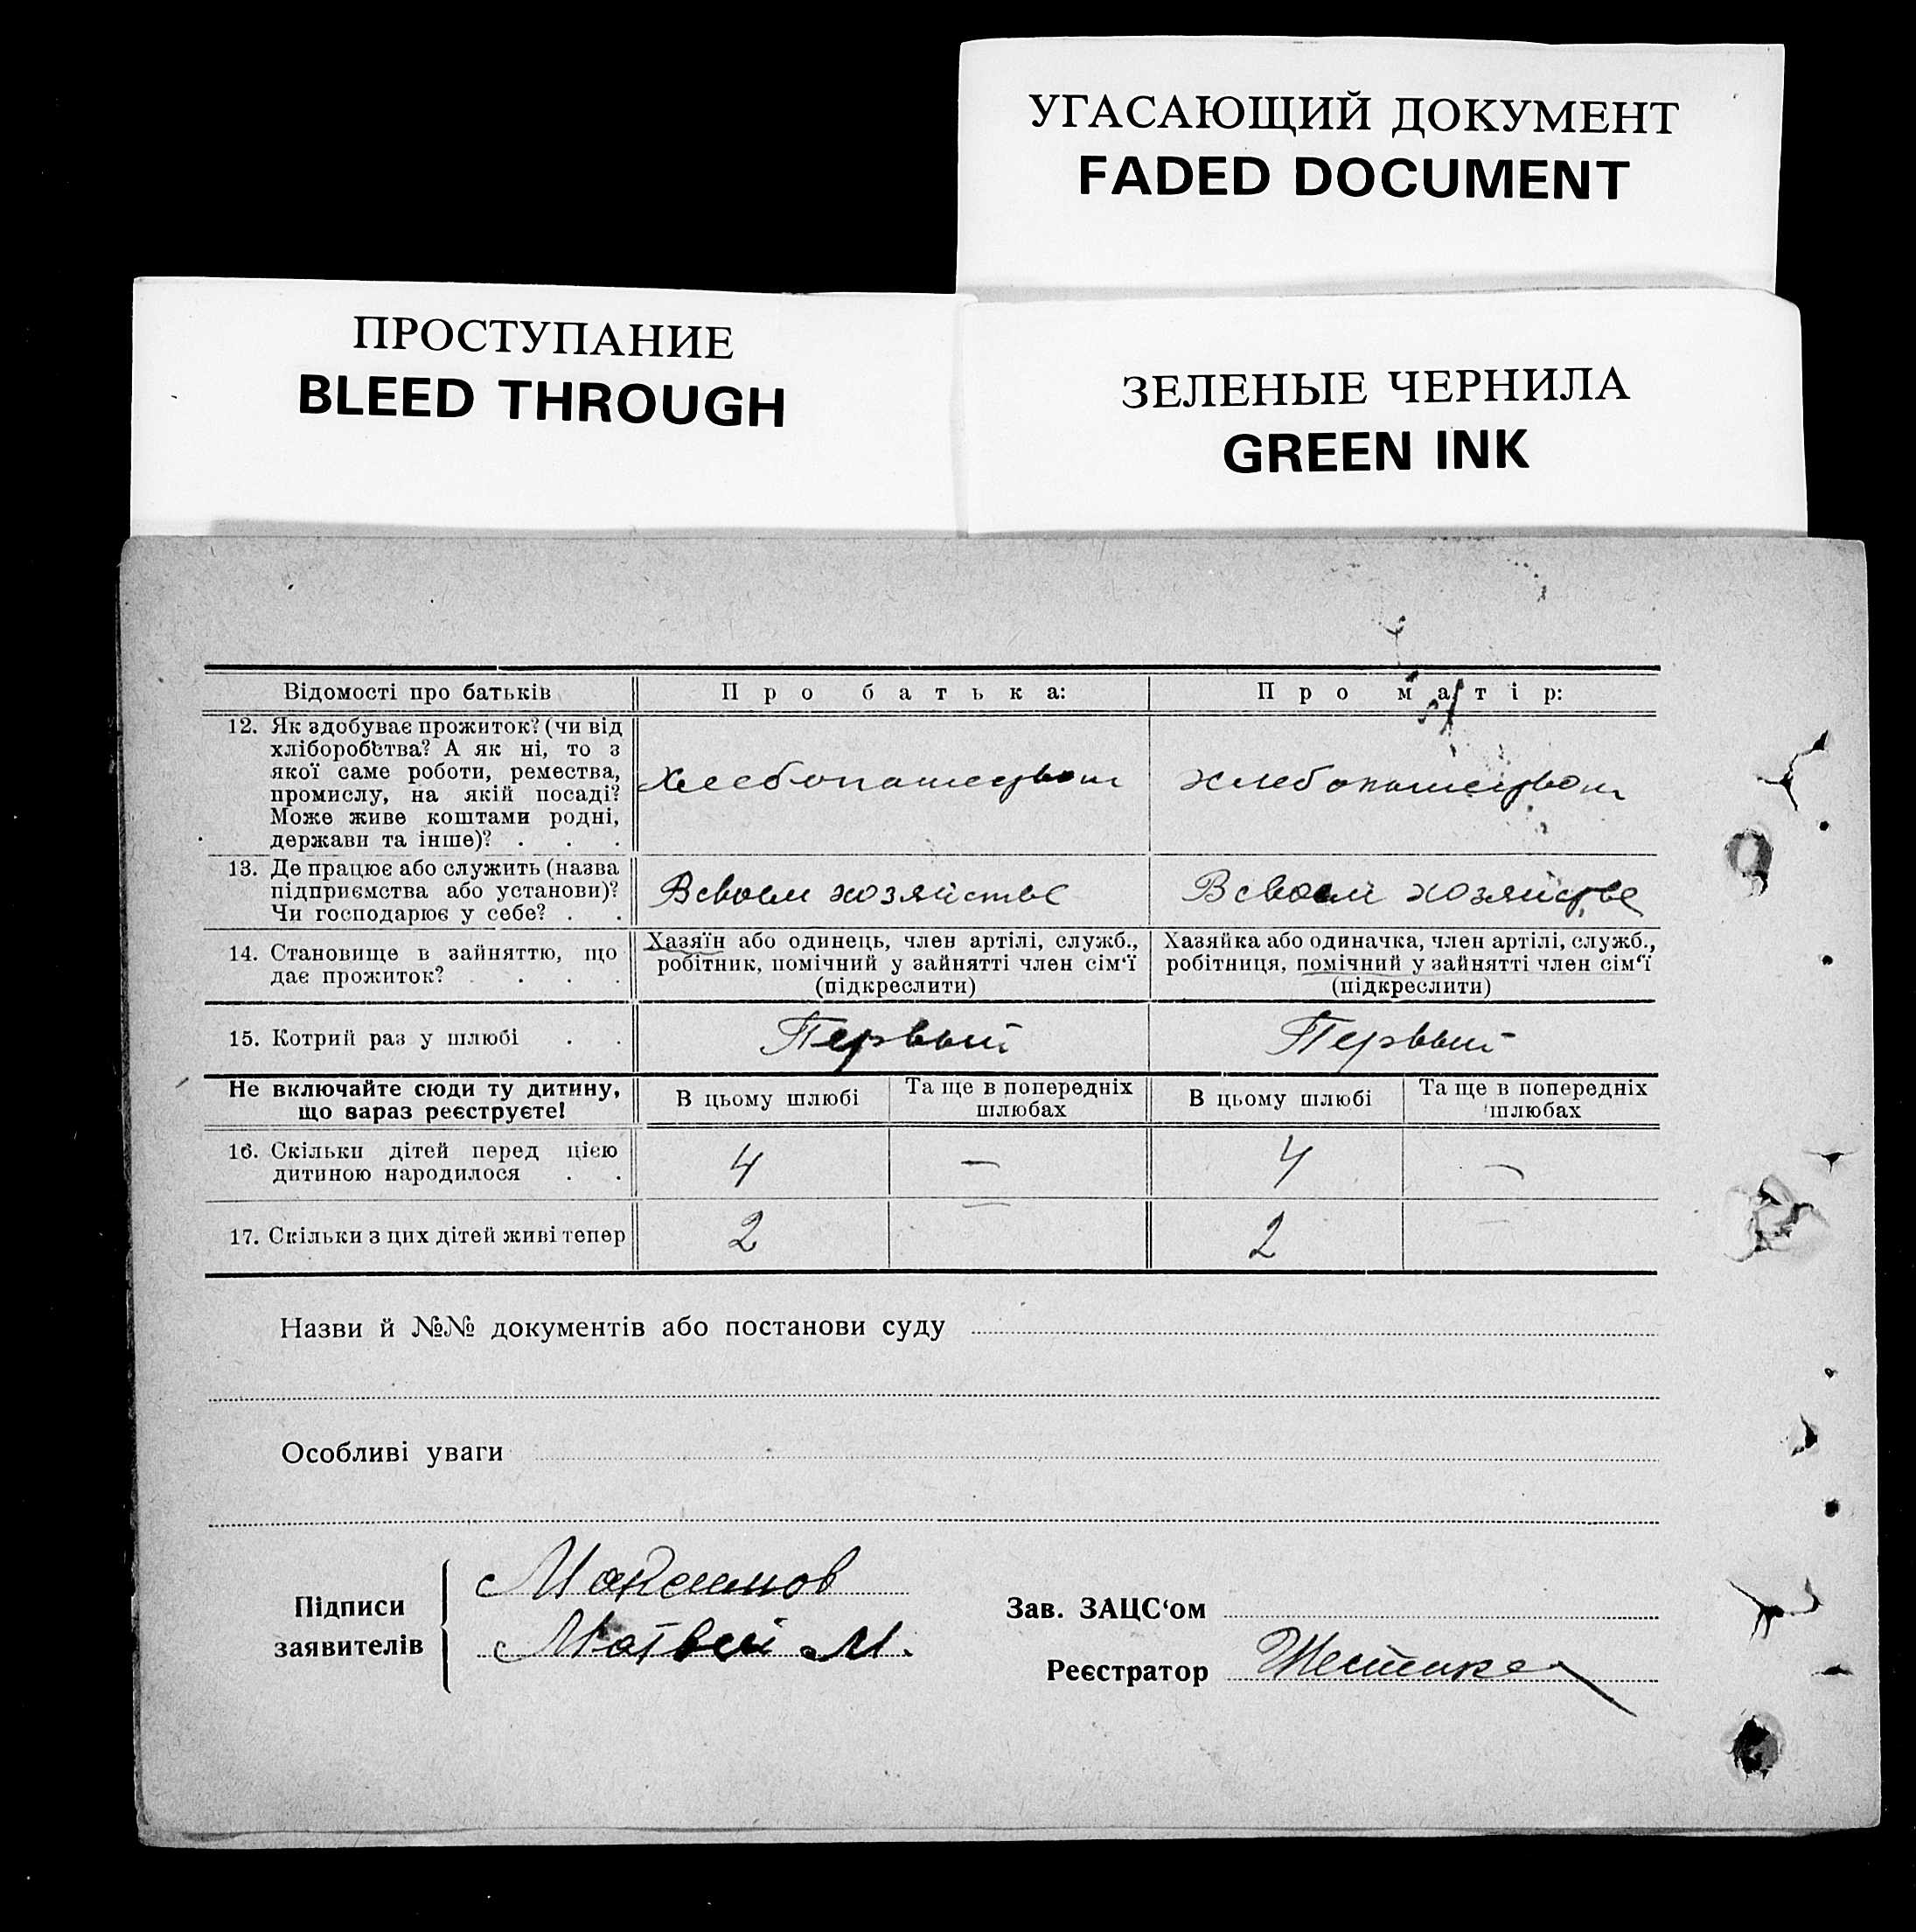 УГАСАЮЩИЙ ДОКУМЕНТ
FADED DOCUMENT
ПРОСТУПАНИЕ
BLEED THROUGH
ЗЕЛЕНЫЕ ЧЕРНИЛА
GREEN INK
Відомості про батьків
Про батька:
Про матір:
12. Як здобуває прожиток? (чи від
хліборобства? А як ні, то з
якої саме роботи, ремества,
промислу, на якій посаді?
Може живе коштами родні,
держави та інше)? . . .
Хлебопашеством
хлебопашеством
13. Де працює або служить (назва
підприємства або установи)?
Чи господарює у себе? . .
В своем хозяйстве
В своем хозяйстве
14. Становище в зайняттю, що
дає прожиток? . . . .
Хазяїн або одинець, член артілі, служб.,
робітник, помічний у зайнятті член сім'ї
(підкреслити)
Хазяйка або одиначка, член артілі, служб.,
робітниця, помічний у зайнятті член сім'ї
(підкреслити)
15. Котрий раз у шлюбі . .
Первый
Первый
Не включайте сюди ту дитину,
що зараз реєструєте!
В цьому шлюбі
Та ще в попередніх
шлюбах
В цьому шлюбі
Та ще в попередніх
шлюбах
16. Скільки дітей перед цією
дитиною народилося . .
4
—
4
—
17. Скільки з цих дітей живі тепер
2
—
2
—
Назви й №№ документів або постанови суду
Особливі уваги
Підписи
заявителів
Максимов
Матвей М.
Зав. ЗАЦС'ом
Реєстратор